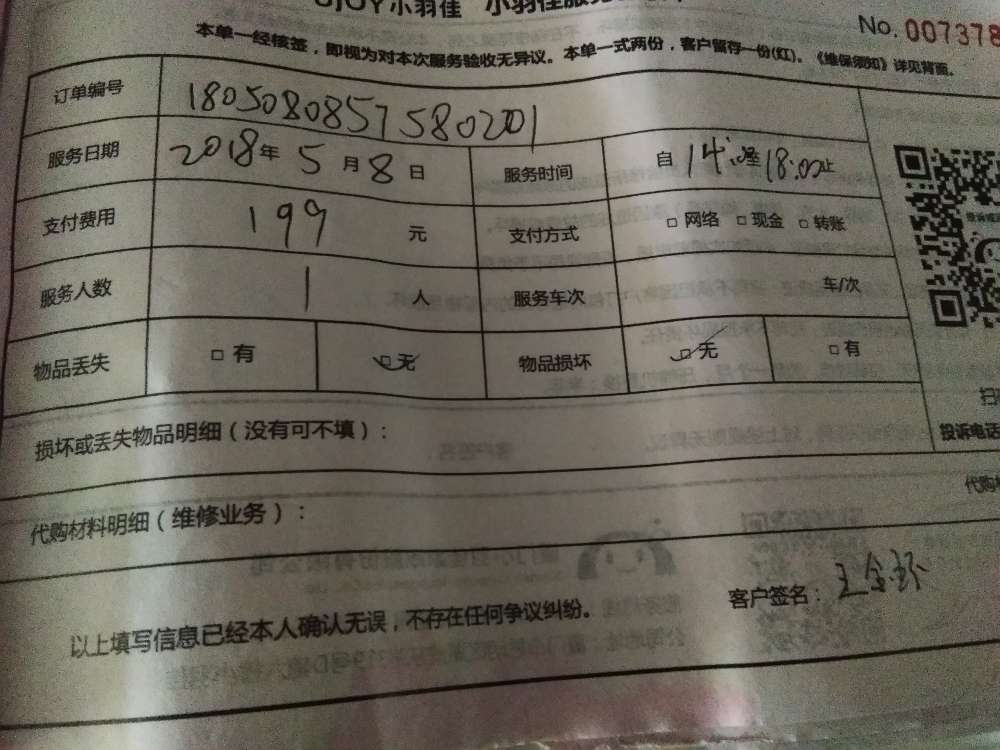 小羽佳 小羽佳服
No. 007378
本单一经核签，即视为对本次服务验收无异议。本单一式两份，客户留存一份(红)。《维保须知》详见背面。
订单编号 1805080857580201
服务日期 2018年 5 月 8 日 服务时间 自 14:00至18:00止
支付费用 199 元 支付方式 □ 网络 □ 现金 □ 转账
服务人数 1 人 服务车次 车/次
物品丢失 □ 有 ☑ 无 物品损坏 ☑ 无 □ 有
损坏或丢失物品明细（没有可不填）：
投诉电话
代购材料明细（维修业务）：
以上填写信息已经本人确认无误，不存在任何争议纠纷。
客户签名：王金环